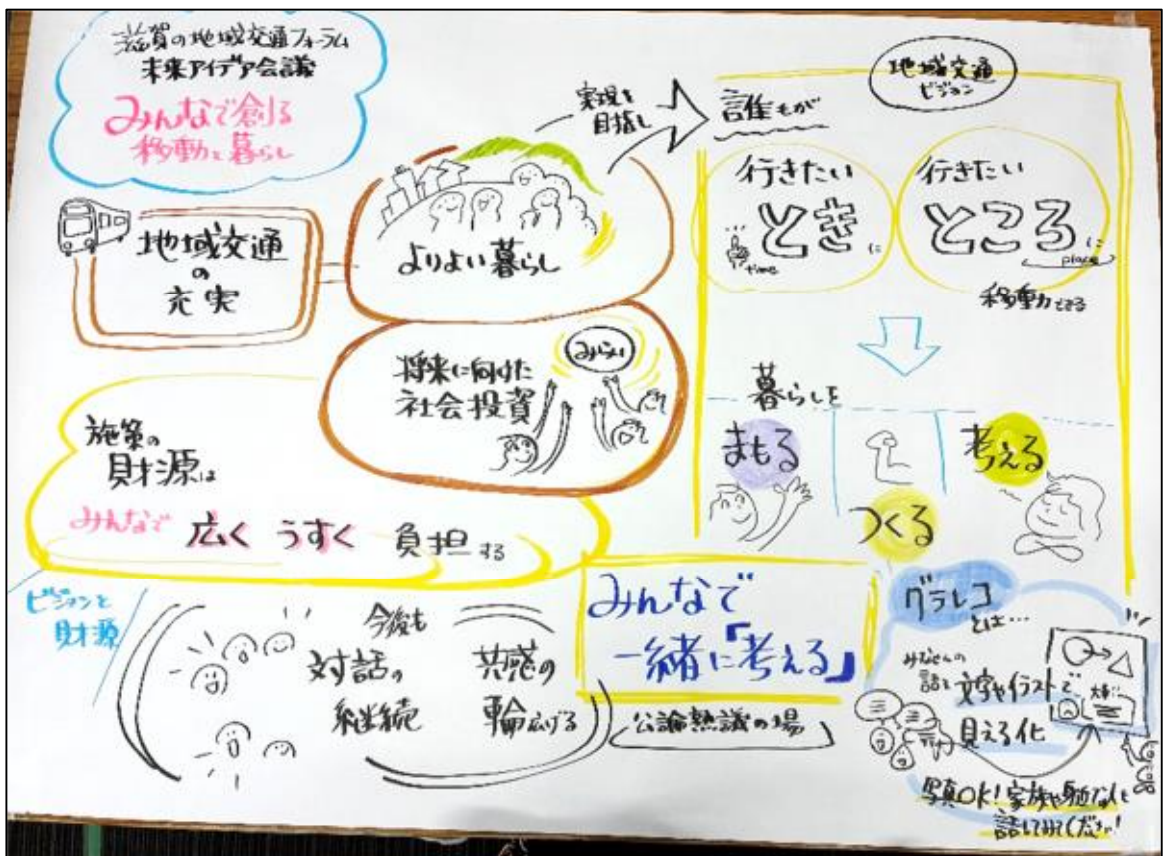 滋賀の地域交通フォーラム
未来アイデア会議
みんなで創る
移動と暮らし
地域交通
の
充実
よりよい暮らし
実現を
目指し
将来に向けた
社会投資
みらい
地域交通
ビジョン
誰もが
行きたい
ときに
time
行きたい
ところに
place
移動できる
暮らしを
まもる
つくる
考える
施策の
財源は
みんなで 広く うすく 負担する
ビジョンと
財源
今後も
対話の
継続
共感の
輪広げる
みんなで
一緒に「考える」
公論熟議の場
グラレコ
とは…
みなさんの
話を文字やイラストで
見える化
大事に
写真OK!家族や身近な人と
話してみてください!